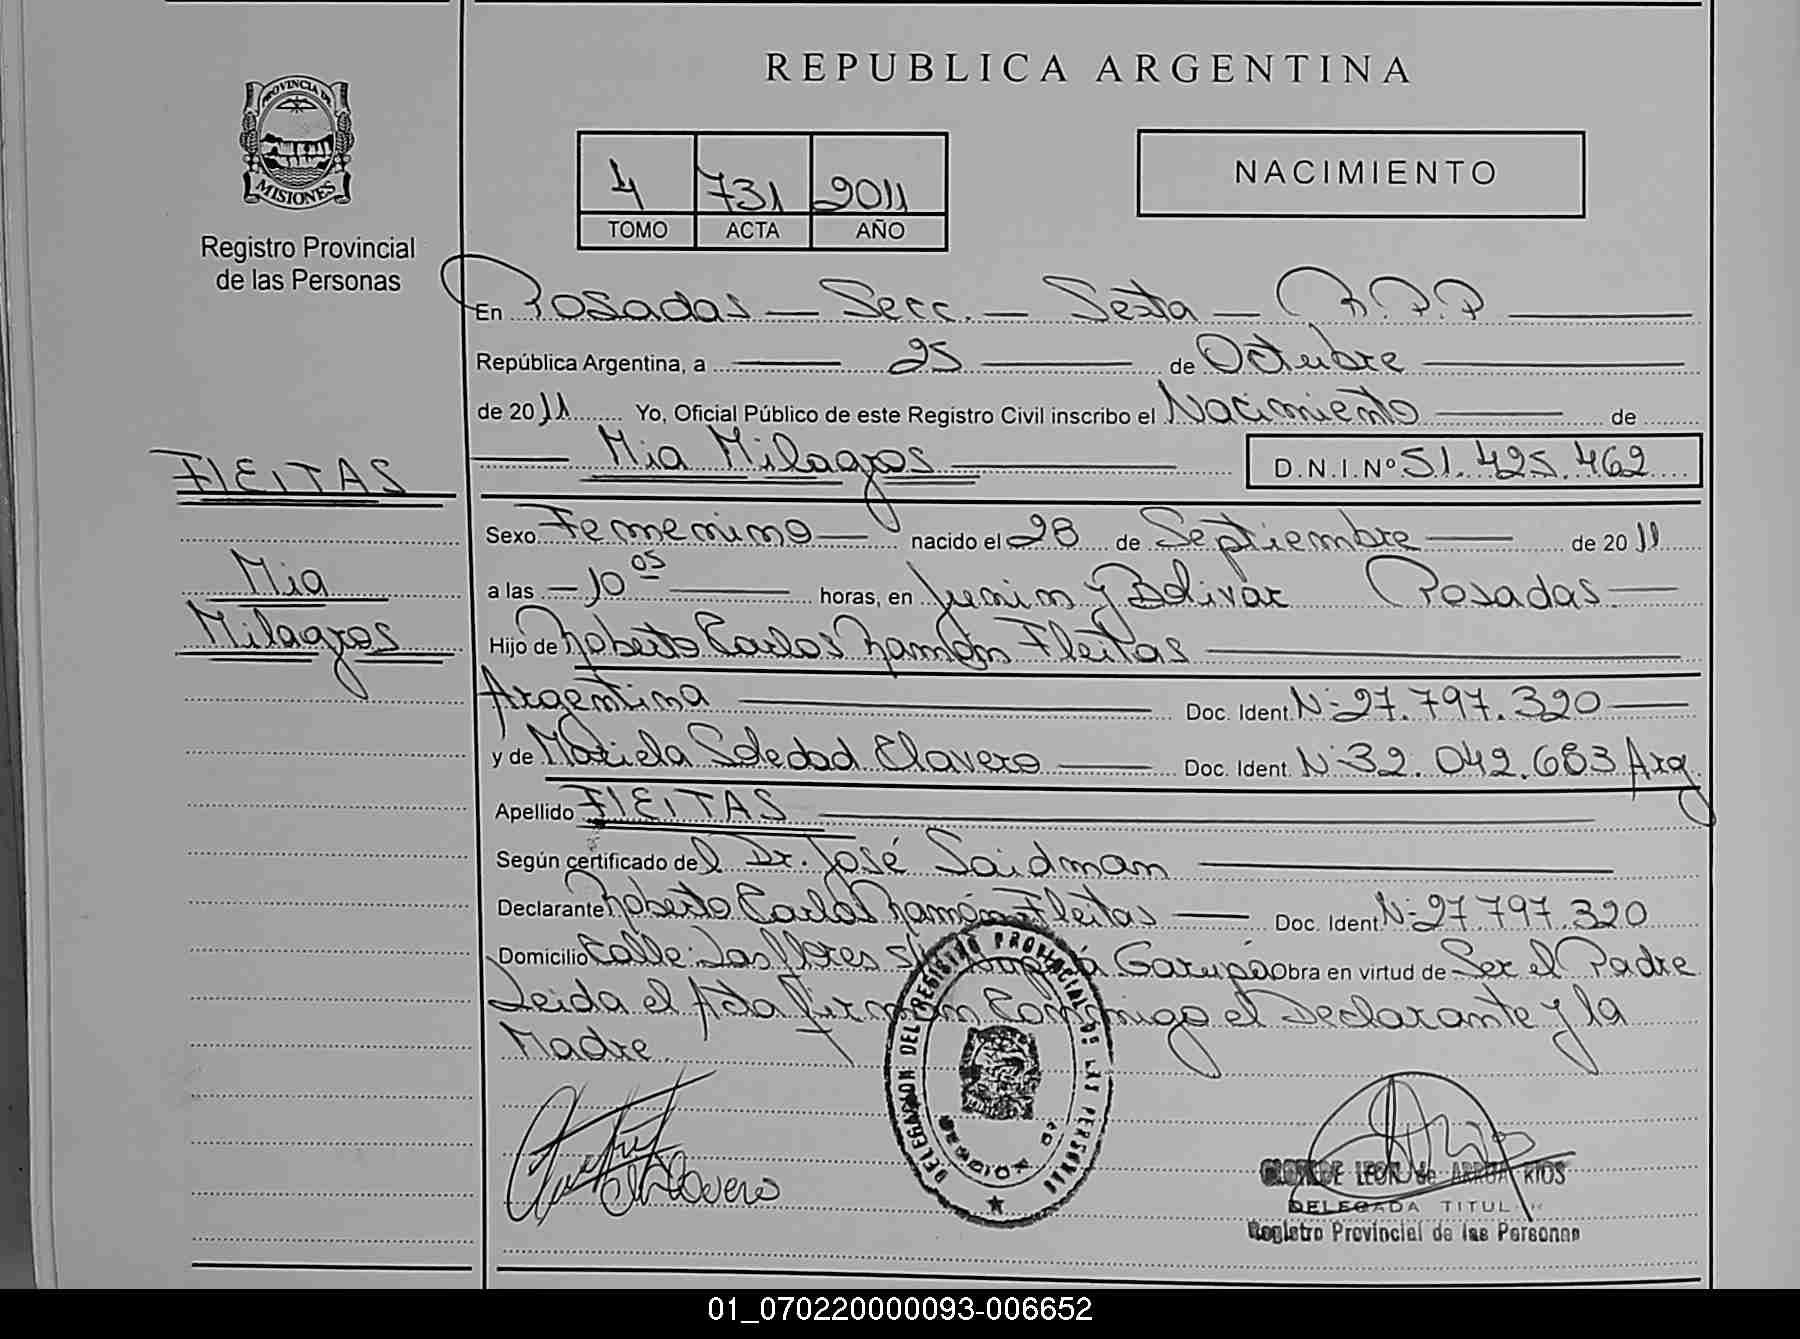 REPUBLICA ARGENTINA
PROVINCIA DE
MISIONES
Registro Provincial
de las Personas
4 731 2011
TOMO ACTA AÑO
NACIMIENTO
En Posadas — Secc. — Sexta — R.P.P
República Argentina, a 25 de Octubre
de 2011 Yo, Oficial Público de este Registro Civil inscribo el Nacimiento de
Mia Milagros D.N.I.Nº 51.425.462
FLEITAS
Mia
Milagros
Sexo Femenino nacido el 28 de Septiembre de 2011
a las — 10 05 horas, en Junin y Bolivar Posadas
Hijo de Roberto Carlos Ramón Fleitas
Argentina Doc. Ident. Nº 27.797.320
y de Mariela Soledad Clavero Doc. Ident. Nº 32.042.683 Arg.
Apellido FLEITAS
Según certificado del Dr. José Saidman
Declarante Roberto Carlos Ramón Fleitas Doc. Ident. Nº 27.797.320
Domicilio Calle Las flores Garupá Obra en virtud de Ser el Padre
Leida el Acta firman Conmigo el Declarante y la
Madre.
DELEGACION DEL REGISTRO PROVINCIAL DE LAS PERSONAS
Clavero
LEON de ARRUA RIOS
DELEGADA TITULAR
Registro Provincial de las Personas
01_070220000093-006652